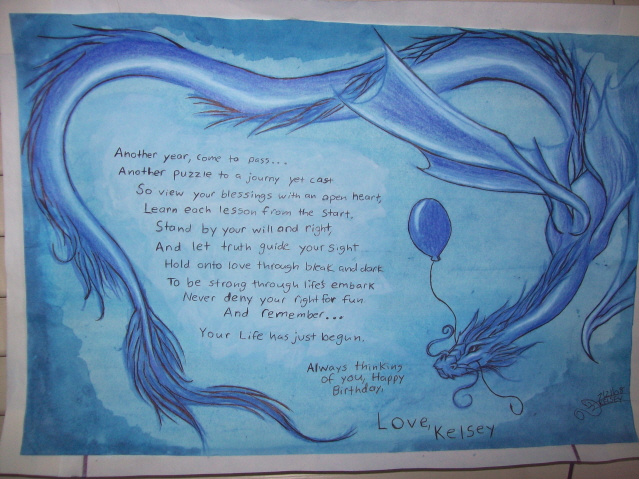 Another year, come to pass...
Another puzzle to a journy yet cast
So view your blessings with an open heart,
Learn each lesson from the start.
Stand by your will and right,
And let truth guide your sight
Hold onto love through bleak and dark
To be strong through life's embark
Never deny your right for fun
And remember...
Your Life has just begun.
Always thinking
of you, Happy
Birthday,
Love,
Kelsey